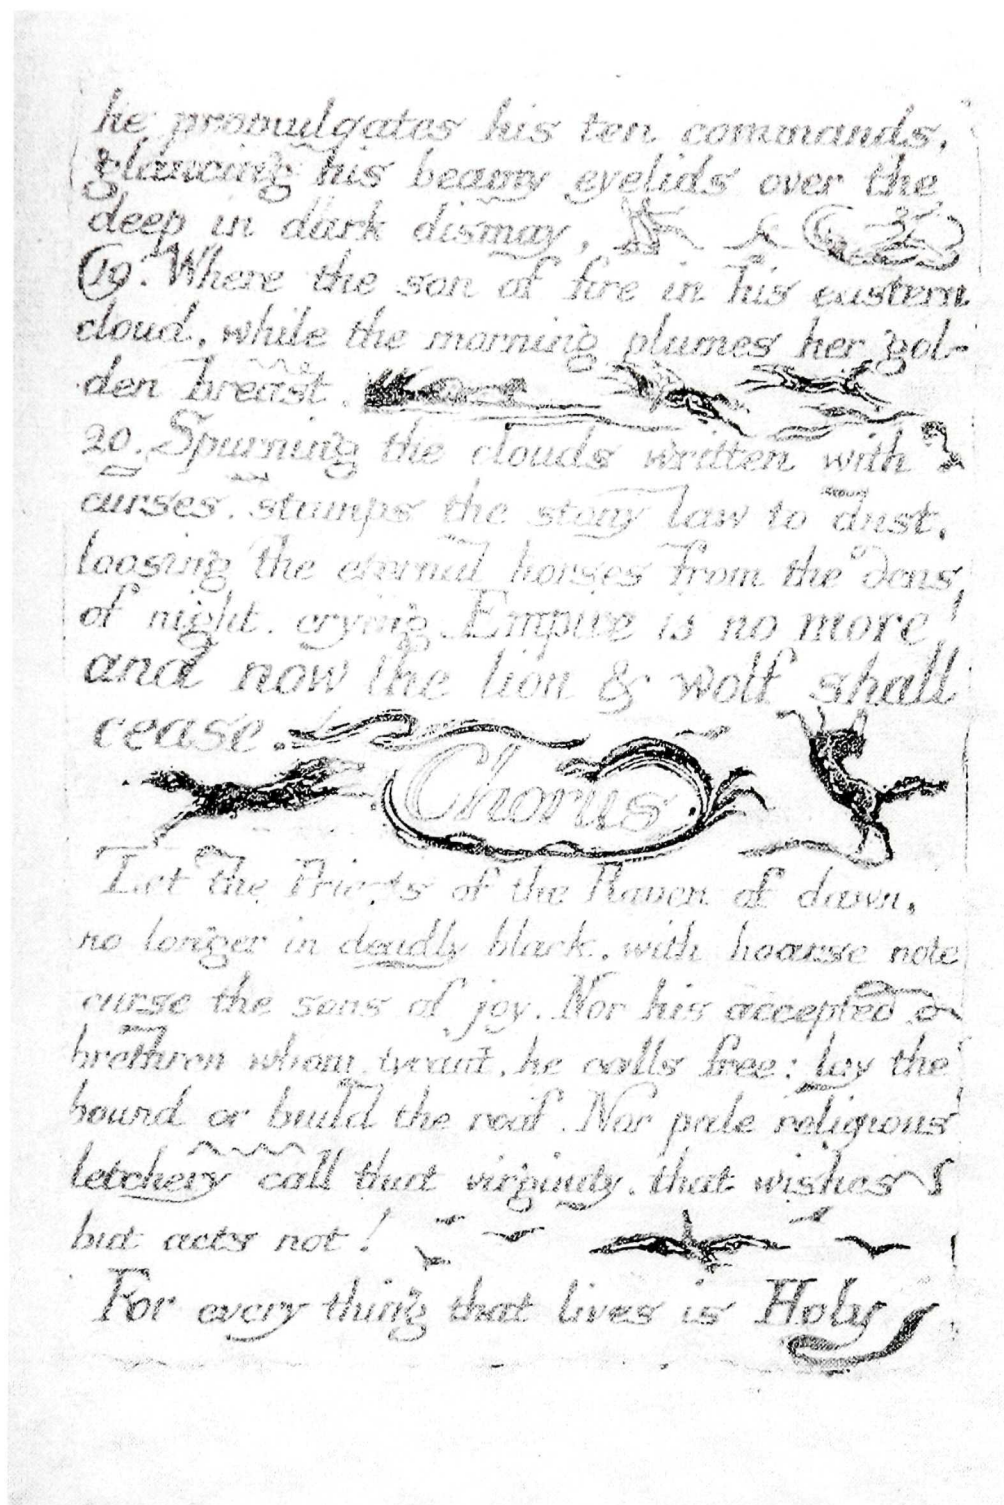 he promulgates his ten commands,
glancing his beamy eyelids over the
deep in dark dismay,
19. Where the son of fire in his eastern
cloud, while the morning plumes her gol-
den breast.
20. Spurning the clouds written with
curses, stamps the stony law to dust,
loosing the eternal horses from the dens
of night, crying Empire is no more!
and now the lion & wolf shall
cease.
Chorus
Let the Priests of the Raven of dawn,
no longer in deadly black, with hoarse note
curse the sons of joy. Nor his accepted
brethren whom, tyrant, he calls free: lay the
bound or build the roof. Nor pale religious
letchery call that virginity, that wishes
but acts not!
For every thing that lives is Holy